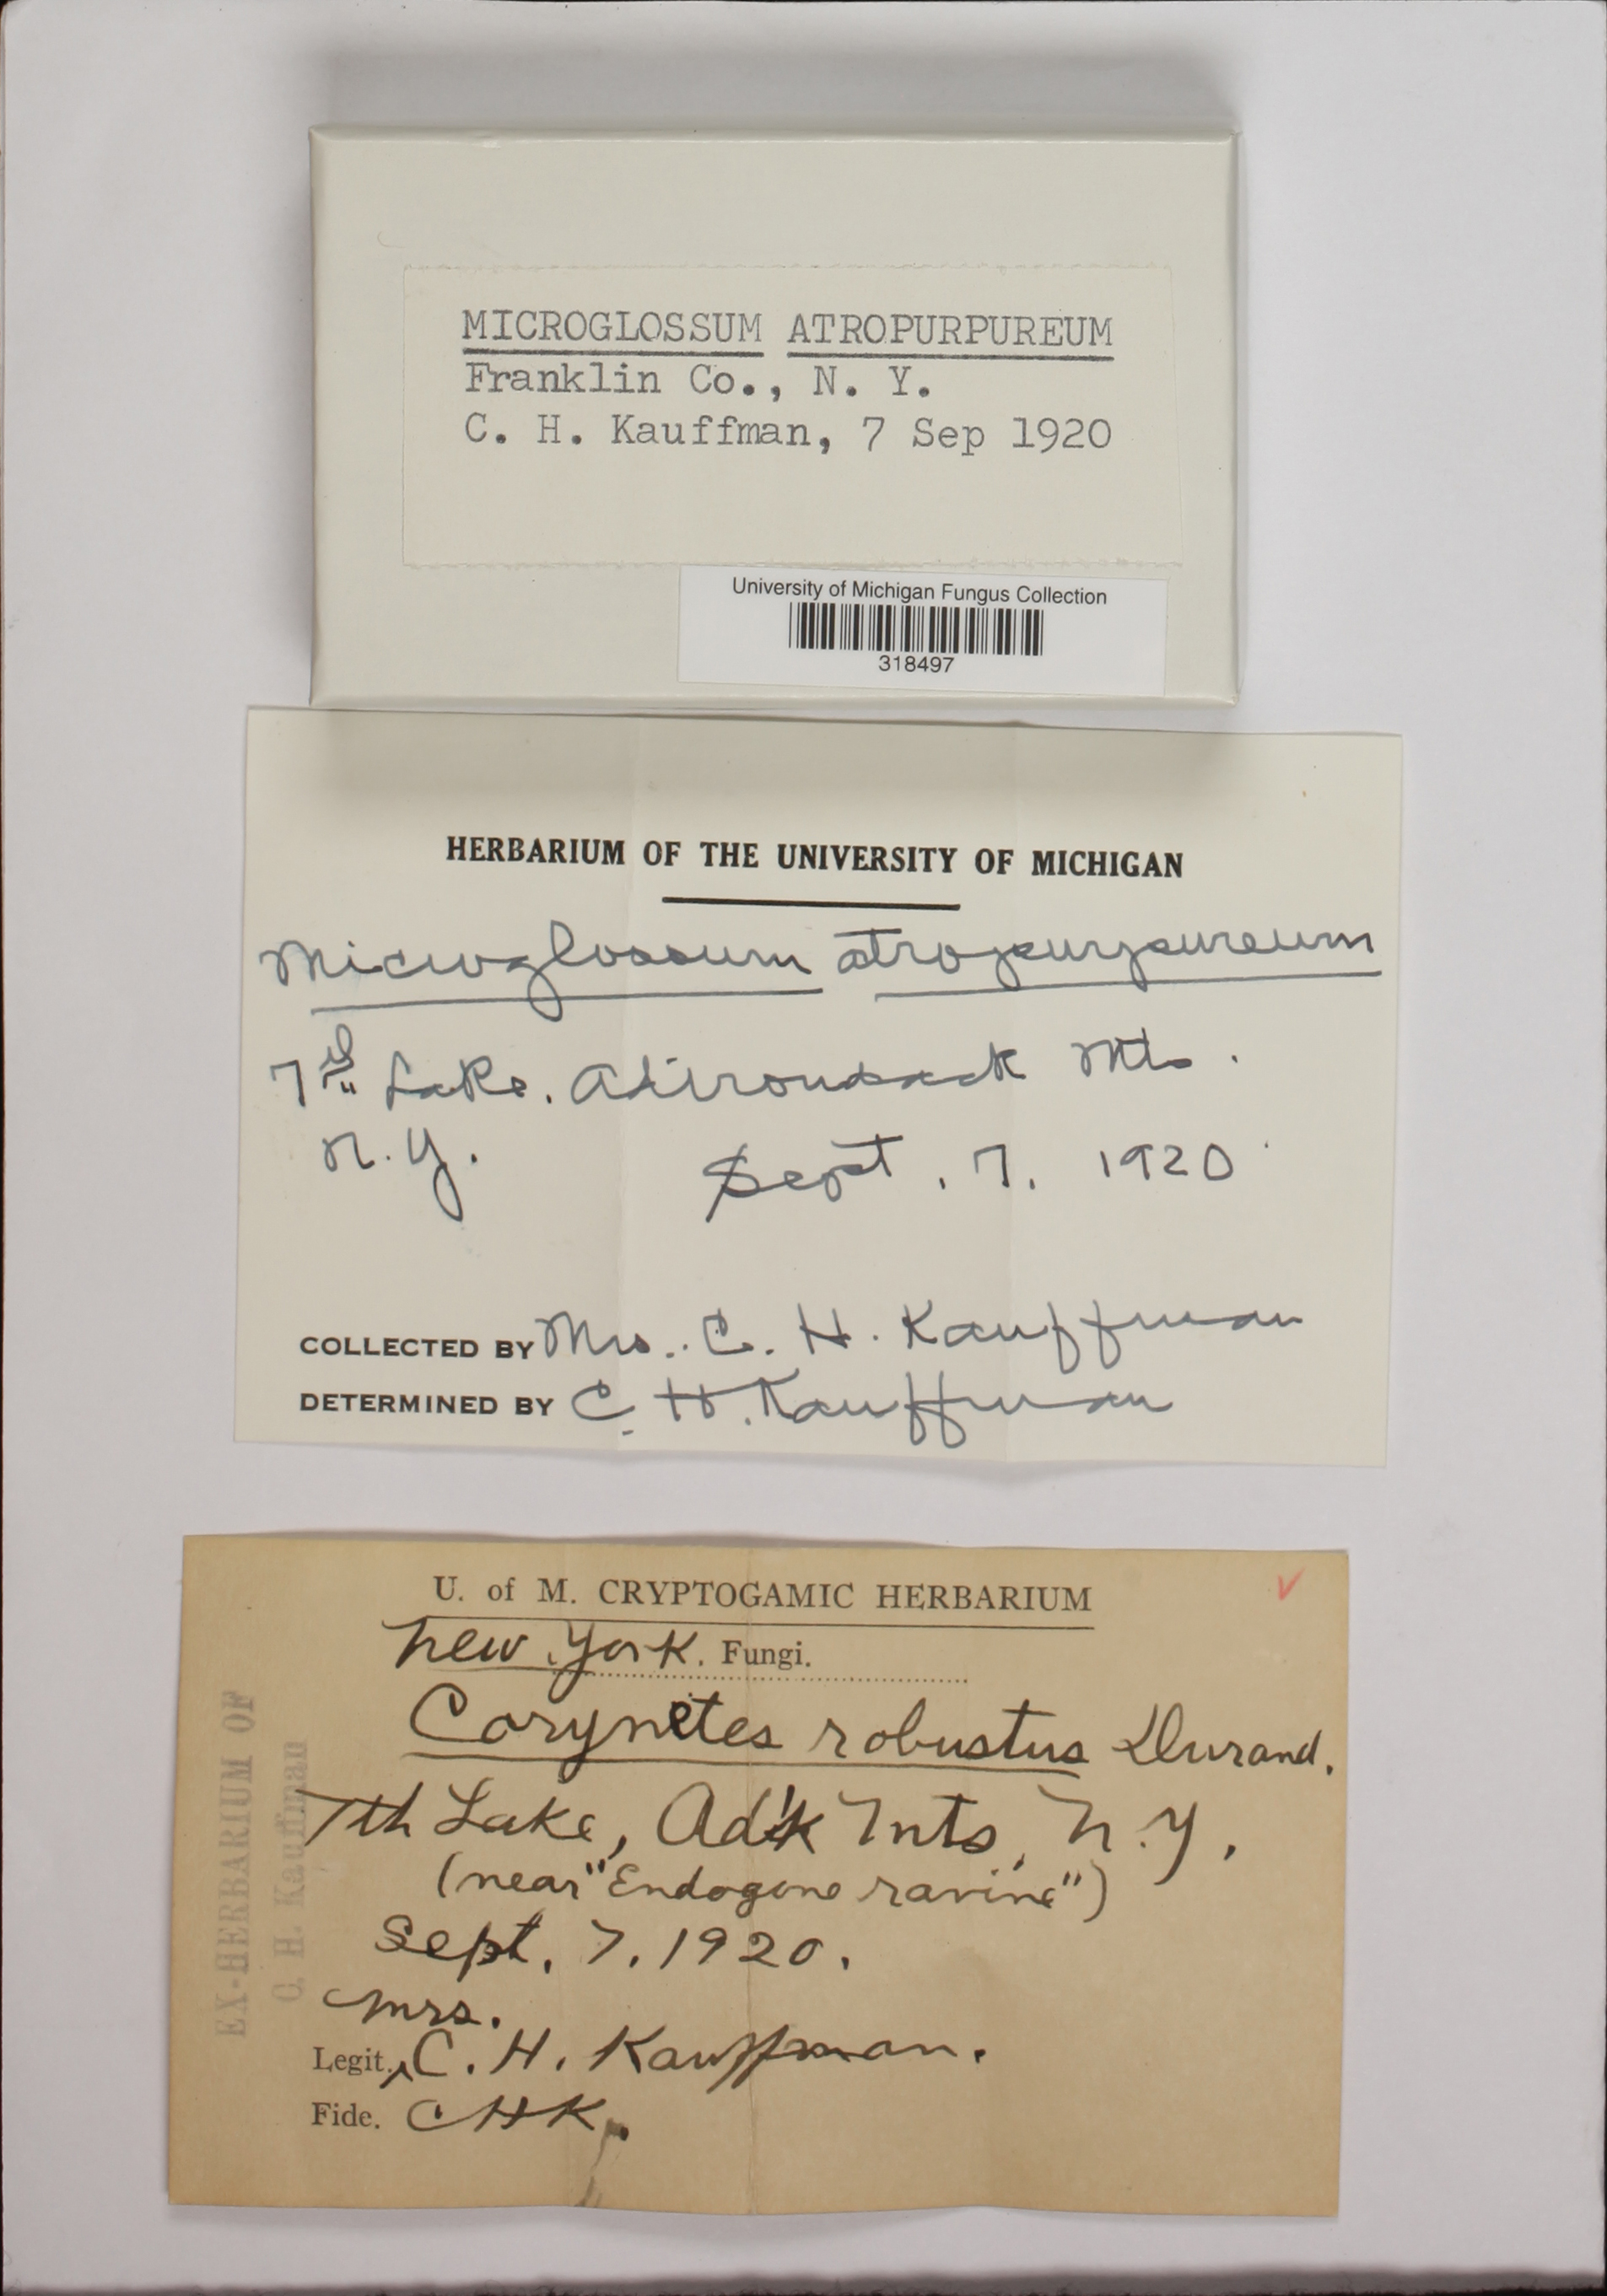 MICROGLOSSUM ATROPURPUREUM
Franklin Co., N. Y.
C. H. Kauffman, 7 Sep 1920
University of Michigan Fungus Collection
318497
HERBARIUM OF THE UNIVERSITY OF MICHIGAN
Microglossum atropurpureum
7th Lake. Adirondack Mts.
N.Y. Sept. 7. 1920
COLLECTED BY Mrs. C. H. Kauffman
DETERMINED BY C. H. Kauffman
U. of M. CRYPTOGAMIC HERBARIUM
New York. Fungi.
Corynetes robustus Durand.
7th Lake, Ad'k Mts, N.Y.
(near "Endogone ravine")
Sept. 7. 1920.
Mrs.
Legit. C. H. Kauffman.
Fide. CHK.
EX-HERBARIUM OF
C. H. Kauffman